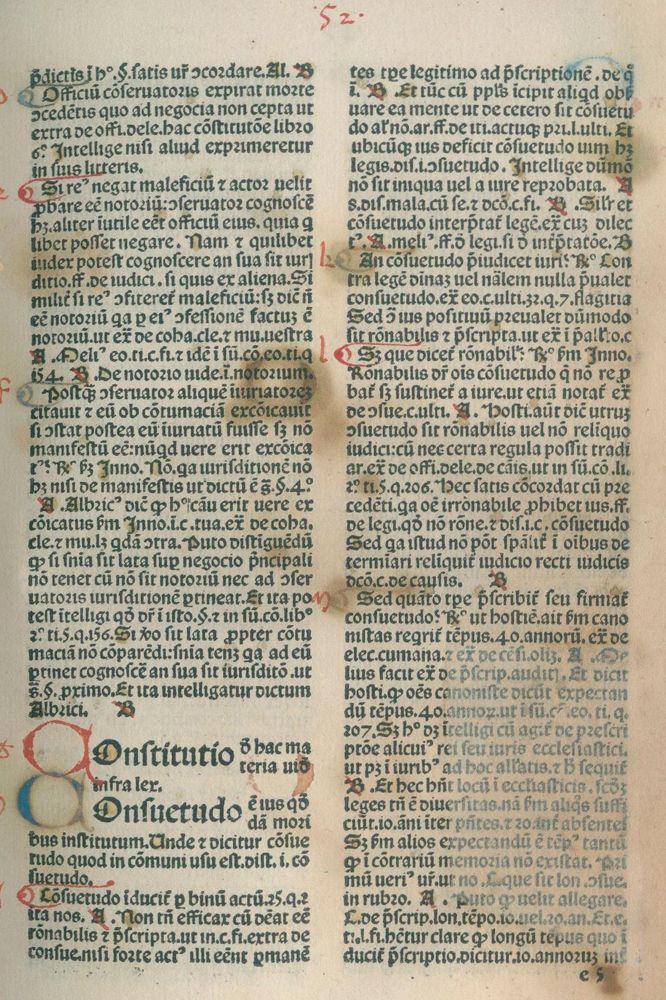 52.
p̄dictis ī hº.§.satis vr̄ ↄcordare.Al. B
Officiū cōseruatoris expirat morte
ↄcedētis quo ad negocia non cepta vt
extra de offi.dele.hac cōstitutōe libro
6º. Intellige nisi aliud exprimeretur
in suis litteris.
Si reꝰ negat maleficiū ⁊ actor velit
ꝓbare eē notoriū:ↄseruator cognoscē
hꝫ.aliter īutile eēt officiū eius. quia q
libet posset negare. Nam ⁊ quilibet
iudex potest cognoscere an sua sit iurꝭ
ditio.ff.de iudici. si quis ex aliena. Si
milit̄ si reꝰ ↄfiteret̄ maleficiū: sꝫ dic̄ n̄
eē notoriū qa ꝑ eiꝰ ↄfessionē factuꝫ ē
notoriū.vt ex̄ de coha.cle.⁊ mu.vestra
A .Meliꝰ eo.ti.c.fi.⁊ idē ī sū.cō.eo.ti.q
154. B. De notorio vide.ī.notorium.
Postq̄ꝫ ↄseruator aliquē iniuriatoreꝫ
citauit ⁊ eū ob cōtumaciā excōicauit
si ↄstat postea eū iniuriatū fuisse sꝫ nō
manifestū eē:nūqd vere erit excōica
tꝰ. Rº fꝫ Inno. Nō.qa iurisditionē nō
hꝫ nisi de manifestis vt dictū ē s̄.§.4º.
A .Albricꝰ dic̄ ꝙ hº cāu erit vere ex
cōicatus ẜm Inno.ī.c.tua.ex̄ de coha.
cle.⁊ mu.lꝫ qdā ↄtra. Puto distīguēdū
ꝙ si snīa sit lata suꝑ negocio p̄ncipali
nō tenet cū nō sit notoriū nec ad ↄser
uatoris iurisditionē ꝑtineat. Et ita po
test ītelligi qď dr̄ ī isto.§.⁊ in sū.cō.libº
2º ti.5.q.156. Si v̄o sit lata ꝓpter cōtu
maciā nō cōparēdi:snīa tenꝫ qa ad eū
ꝑtinet cognoscē an sua sit iurisditō.vt
s̄.§.ꝓximo. Et ita intelligatur dictum
Albrici. B
COnstitutio ď hac ma
teria viď
infra lex.
COnsuetudo ē ius qď
dā mori
bus institutum. Unde ⁊ dicitur cōsue
tudo quod in cōmuni vsu est.dist. i. cō
suetudo.
Cōsuetudo īducit̄ ꝑ binū actū.25.q.2
ita nos. A. Non tn̄ efficax cū dēat eē
rōnabilis ⁊ p̄scripta.vt in.c.fi.extra de
consue.nisi forte actꝰ illi eēnt ꝑmanē
tes tꝑe legitimo ad p̄scriptionē .de qº
ī. B .Et tūc cū ppl̄s īcipit aliqd obẜ
uare ea mente vt de cetero sit cōsuetu
do al̄ nō.ar.ff.de iti.actuqꝫ pri.l.vlti. Et
vbicūqꝫ ius deficit cōsuetudo vim hꝫ
legis.dis.i.ↄsuetudo. Intellige dūmō
nō sit iniqua vel a iure reprobata. A
8.dis.mala.cū se.⁊ dcō.c.fi. B. Silr̄ et
cōsuetudo interp̄tat̄ legē.ex̄ cuꝫ dilec
tꝰ. A.meliꝰ.ff.ď legi.si ď int̄p̄tatōe. B
An cōsuetudo p̄iudicet iuri. Rº Con
tra legē dīnaꝫ vel nālem nulla p̄ualet
consuetudo.ex̄ eo.c.vlti.32.q.7.flagitia
Sed ↄ̄ ius positiuū preualet dūmodo
sit rōnabilis ⁊ p̄scripta.vt ex̄ ī p̄all.º.c
Sꝫ que dicet̄ rōnabil. Rº ẜm Inno.
Rōnabilis dr̄ oīs cōsuetudo q̄ nō re ꝓ
bat̄ sꝫ sustinet̄ a iure.vt etiā notat̄ ex̄
de ↄsue.c.vlti. A. Hosti.aūt dic̄ vtruꝫ
ↄsuetudo sit rōnabilis vel nō relīquo
iudici:cū nec certa regula possit tradi
ar.ex̄ de offi.dele.de cāis.vt in sū.cō.li.
2º ti.5.q.206. Hec satis cōcordat cū pre
cedēti.qa oē irrōnabile ꝓhibet ius.ff.
de legi.qď nō rōne.⁊ dis.i.c.cōsuetudo
Sed qa istud nō pōt spālit̄ ī oībus de
termīari relīquit̄ iudicio recti iudicis
dcō.c.de causis. B
Sed quāto tꝑe p̄scribit̄ seu firmat̄
consuetudo. Rº vt hostiē.ait ẜm cano
nistas reqrit̄ tēpus.40.annorū.ex̄ de
elec.cumana.⁊ ex̄ de cēsi.olīꝫ. A .Me
lius facit ex̄ de p̄scrip.auditꝭ. Et dicit
hosti.ꝙ oēs canoniste dicūt expectan
dū tēpus.40.annoꝝ.vt ī sū.cº.eo.ti. q.
207. Sꝫ hº dꝫ ītelligi cū agit̄ de prescri
ptōe alicuiꝰ rei seu iuris ecclesiastici.
vt pꝫ ī iuribꝰ ad hoc all̄atis.⁊ ħ sequit̄
B .Et hec hn̄t locū ī ecclīasticis. scďꝫ
leges tn̄ ē diuersitas.nā ẜm aliq̄s suffi
ciūt.10.āni īter p̄ntes.⁊ 20.int̄ absentes
Sꝫ ẜm alios expectandū ē tēpꝰ tantū
ꝙ ī cōtrariū memoria nō existat. Pri
mū veriꝰ vr̄.vt no .C.que sit lon .ↄsue.
in rubro. A . Puto ꝙ velit allegare.
C.de p̄scrip.lon.tēpo.10.vel.20.an.Et.e.
ti.l.fi.hētur clare ꝙ longū tēpus quo ī
ducit̄ p̄scriptio.dicitur.10.annoruꝫ int̄
e 5